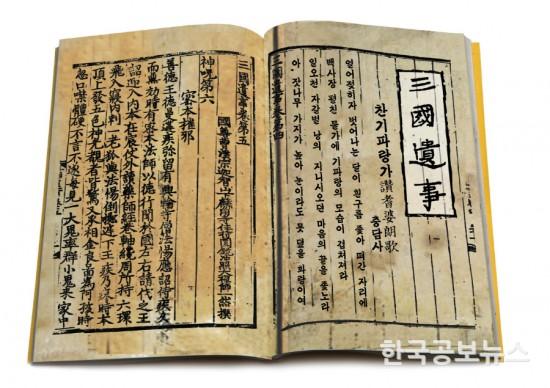 三國遺事
찬기파랑가 讚耆婆朗歌
충담사
열어젖히자 벗어나는 달이 흰구름 좇아 떠간 자리에
백사장 펼친 물가에 기파랑의 모습이 겹쳐져라
일오천 자갈벌 낭의 지니시오던 마음의 끝을 좇노라
아 잣나무 가지가 높아 눈이라도 못 덮을 화랑이여
三國遺事卷第四
三國遺事卷第五
國尊曹溪宗迦智山下麟角寺住持圓鏡冲照大禪師一然撰
神呪第六
密本摧邪
善德王德曼遘疾弥留有興輪寺僧法惕應詔侍疾久
而無効時有密本法師以德行聞於國左右請代之王
詔迎入內本在宸仗外讀藥師經卷軸纔周所持六環
飛入寢內刺一老狐與法惕倒擲庭下王疾乃瘳時本
頂上發五色神光覩者皆驚又丞相金良圖為阿孩時
忽口噤體硬不言不遂每見一大鬼率群小鬼來家中
한국공보뉴스